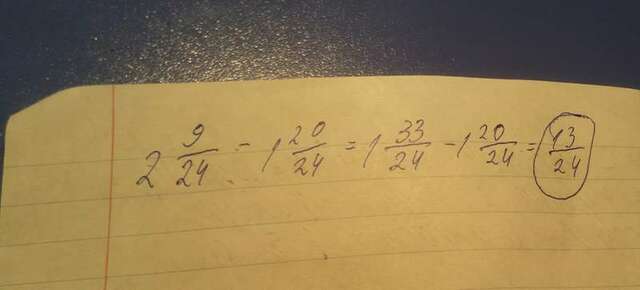 2 9/24 - 1 20/24 = 1 33/24 - 1 20/24 = 13/24